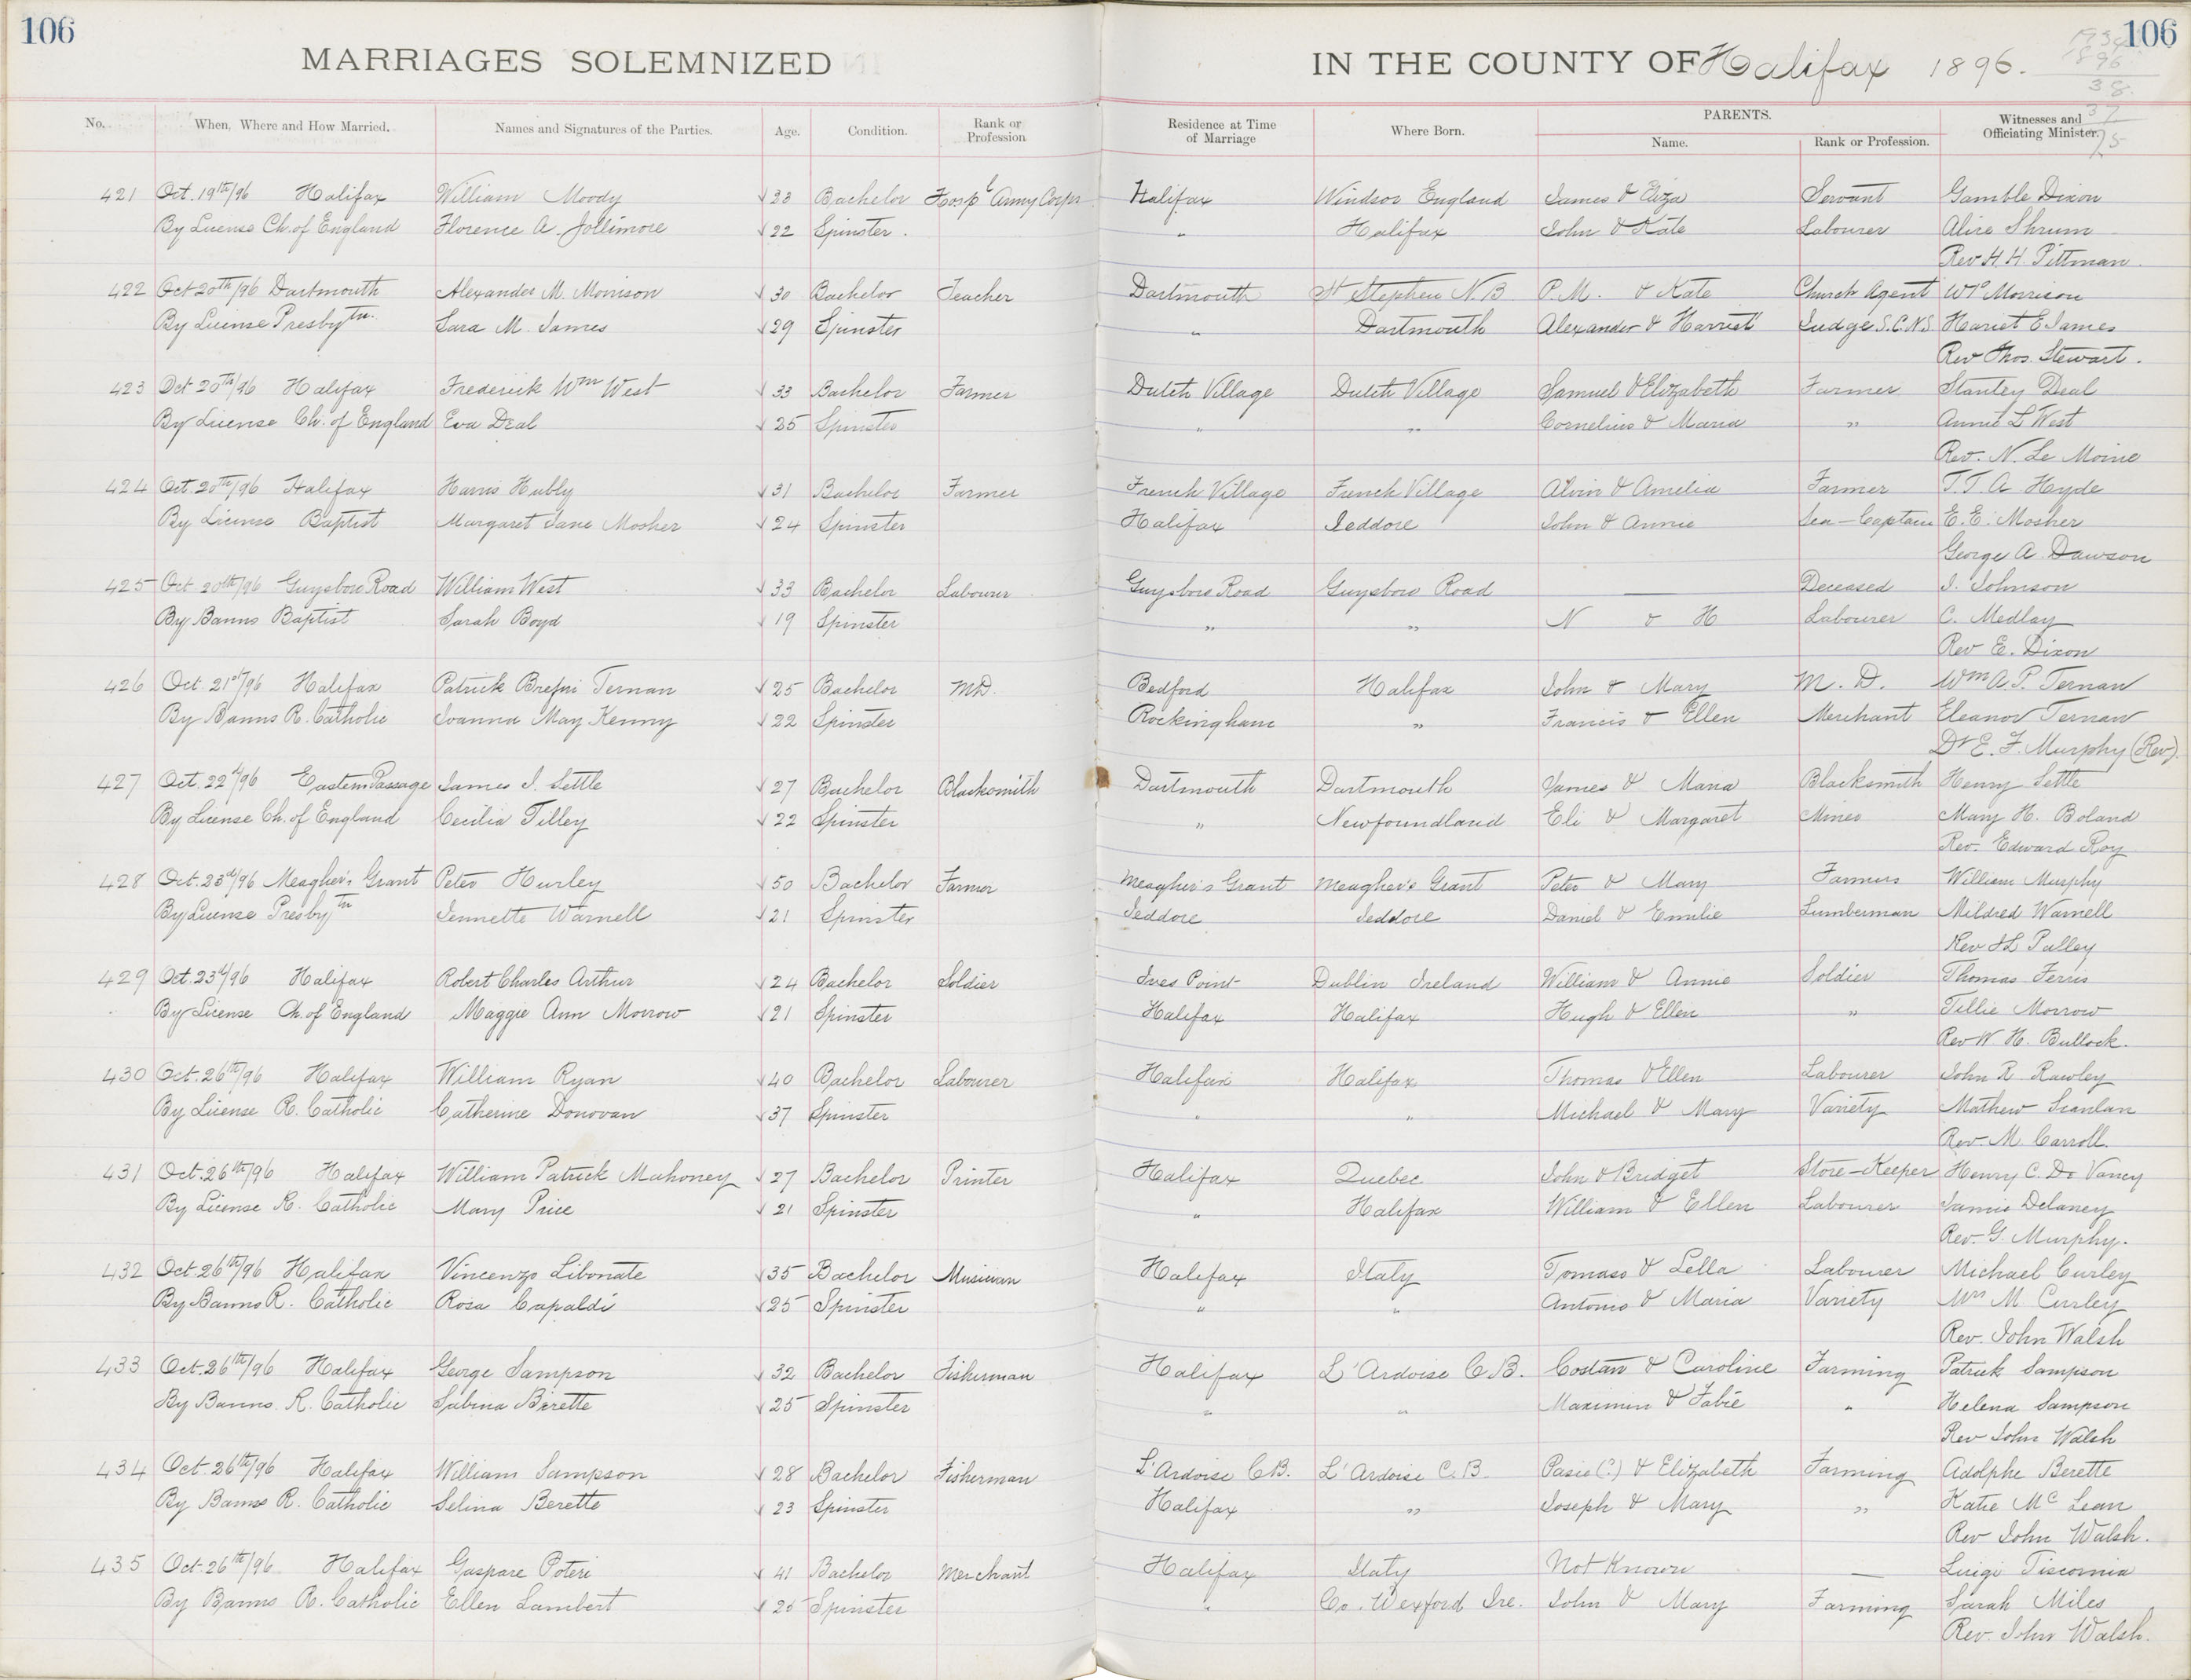 106 106
MARRIAGES SOLEMNIZED IN THE COUNTY OF Halifax 1896.
1934
1896
38
37
75
No. When, Where and How Married. Names and Signatures of the Parties. Age. Condition. Rank or Profession Residence at Time of Marriage Where Born. PARENTS. Name. Rank or Profession. Witnesses and Officiating Minister.
421 Oct. 19th/96 Halifax William Moody 23 Bachelor Hospl Army Corps Halifax Windsor England James & Eliza Servant Gamble Dixon
By License Ch. of England Florence A Jollimore 22 Spinster. " Halifax John & Kate Labourer Alice Shrum
Rev H. H. Pittman.
422 Oct 20th/96 Dartmouth Alexander M. Morrison 30 Bachelor Teacher Dartmouth St Stephen N.B P.M. & Kate Church Agent Morrison
By License Presbytn. Sara M. James 29 Spinster " Dartmouth Alexander & Harriet Judge S.C.N.S Hariet E James
Rev Thos. Stewart.
423 Oct 20th/96 Halifax Frederick Wm West 33 Bachelor Farmer Dutch Village Dutch Village Samuel & Elizabeth Farmer Stanley Deal
By License Ch. of England Eva Deal 25 Spinster " " Cornelius & Maria " Annie L West
Rev. N. Le Moine
424 Oct. 20th/96 Halifax Harris Hubly 31 Bachelor Farmer French Village French Village Alvin & Amelia Farmer T. T. A Hyde
By License Baptist Margaret Jane Mosher 24 Spinster Halifax Jeddore John & Annie Sea-Captain E. E. Mosher
George A. Dawson
425 Oct 20th/96 Guysboro Road William West 33 Bachelor Labourer Guysboro Road Guysboro Road — Deceased J. Johnson
By Banns Baptist Sarah Boyd 19 Spinster " " N & H Labourer C. Medlay
Rev E. Dixon
426 Oct. 21st/96 Halifax Patrick Brefni Ternan 25 Bachelor M.D. Bedford Halifax John & Mary M. D. Wm A. P. Ternan
By Banns R. Catholic Joanna May Kenny 22 Spinster Rockingham " Francis & Ellen Merchant Eleanor Ternan
Dr E. F. Murphy (Rev).
427 Oct. 22d/96 Eastern Passage James I. Settle 27 Bachelor Blacksmith Dartmouth Dartmouth James & Maria Blacksmith Henry Settle
By License Ch. of England Cecilia Tilley 22 Spinster " Newfoundland Eli & Margaret Miner Mary H. Boland
Rev. Edward Roy
428 Oct. 23d/96 Meagher's Grant Peter Hurley 50 Bachelor Farmer Meagher's Grant Meagher's Grant Peter & Mary Farmer William Murphy
By License Presbytn Jennette Warnell 21 Spinster Jeddore Jeddore Daniel & Emilie Lumberman Mildred Warnell
Rev Palley
429 Oct. 23d/96 Halifax Robert Charles Arthur 24 Bachelor Soldier Ives Point Dublin Ireland William & Annie Soldier Thomas Ferris
By License Ch. of England Maggie Ann Morrow 21 Spinster Halifax Halifax Hugh & Ellen " Tillie Morrow
Rev W H. Bullock.
430 Oct. 26th/96 Halifax William Ryan 40 Bachelor Labourer Halifax Halifax Thomas & Ellen Labourer John R. Rawley
By License R. Catholic Catherine Donovan 37 Spinster " " Michael & Mary Variety Mathew Scanlan
Rev M. Carroll.
431 Oct. 26th/96 Halifax William Patrick Mahoney 27 Bachelor Printer Halifax Quebec John & Bridget Store-Keeper Henry C. De Vaney
By License R. Catholic Mary Price 21 Spinster " Halifax William & Ellen Labourer Jamie Delaney
Rev. G. Murphy.
432 Oct. 26th/96 Halifax Vincenzo Libonate 35 Bachelor Musician Halifax Italy Tomaso & Lella Labourer Michael Curley
By Banns R. Catholic Rosa Capaldi 25 Spinster " " Antonio & Maria Variety Mrs M Curley
Rev. John Walsh
433 Oct. 26th/96 Halifax George Sampson 32 Bachelor Fisherman Halifax L'Ardoise C.B. Costan & Caroline Farming Patrick Sampson
By Banns R. Catholic Sabina Birette 25 Spinster " " Maximin & Fabie " Helena Sampson
Rev John Walsh
434 Oct. 26th/96 Halifax William Sampson 28 Bachelor Fisherman L'Ardoise C.B. L'Ardoise C.B. Pasie (?) & Elizabeth Farming Adolphe Berette
By Banns R. Catholic Selina Berette 23 Spinster Halifax " Joseph & Mary " Katie Mc Lean
Rev John Walsh.
435 Oct. 26th/96 Halifax Gaspare Poteri 41 Bachelor Merchant Halifax Italy Not Known — Luigi Tiscornia
By Banns R. Catholic Ellen Lambert Spinster " Co. Wexford Ire. John & Mary Farming Sarah Miles
Rev. John Walsh.